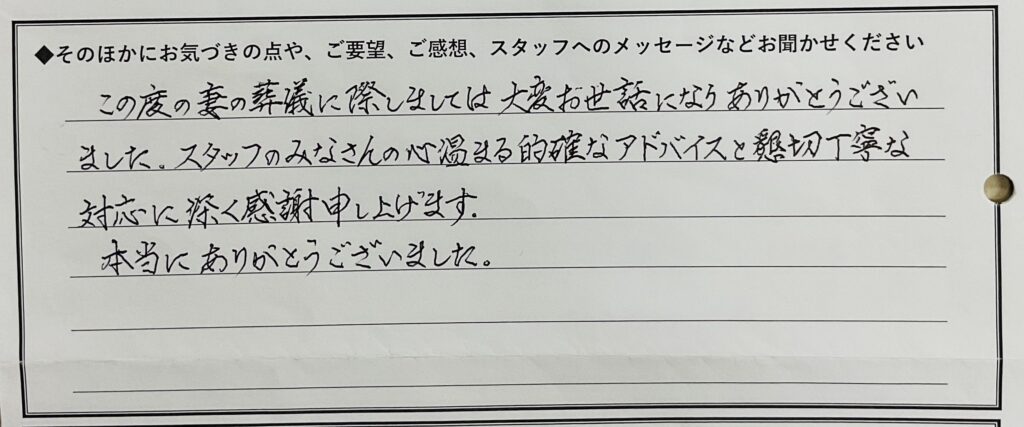 ◆そのほかにお気づきの点や、ご要望、ご感想、スタッフへのメッセージなどお聞かせください
この度の妻の葬儀に際しましては大変お世話になりありがとうござい
ました。スタッフのみなさんの心温まる的確なアドバイスと懇切丁寧な
対応に深く感謝申し上げます.
本当にありがとうございました。